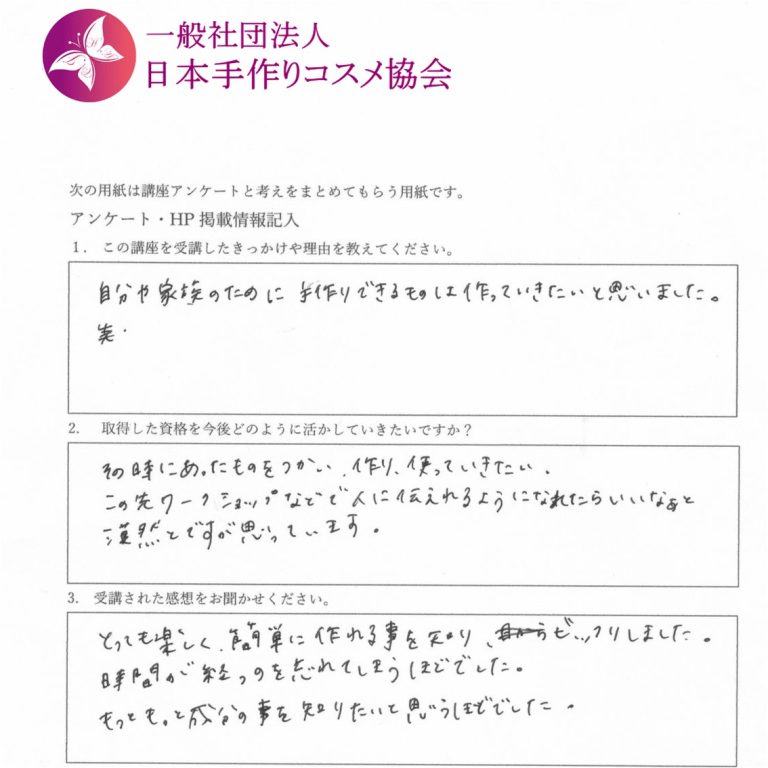 一般社団法人
日本手作りコスメ協会
次の用紙は講座アンケートと考えをまとめてもらう用紙です。
アンケート・HP 掲載情報記入
1. この講座を受講したきっかけや理由を教えてください。
自分や家族のために 手作りできるものは作っていきたいと思いました。
2. 取得した資格を今後どのように活かしていきたいですか？
その時にあったものをつかい、作り、使っていきたい。
この先ワークショップなどで人に伝えれるようになれたらいいなぁと
漠然とですが思っています。
3. 受講された感想をお聞かせください。
とっても楽しく、簡単に作れる事を知り、ビックリしました。
時間が経つのを忘れてしまうほどでした。
もっともっと成分の事を知りたいと思うほどでした。